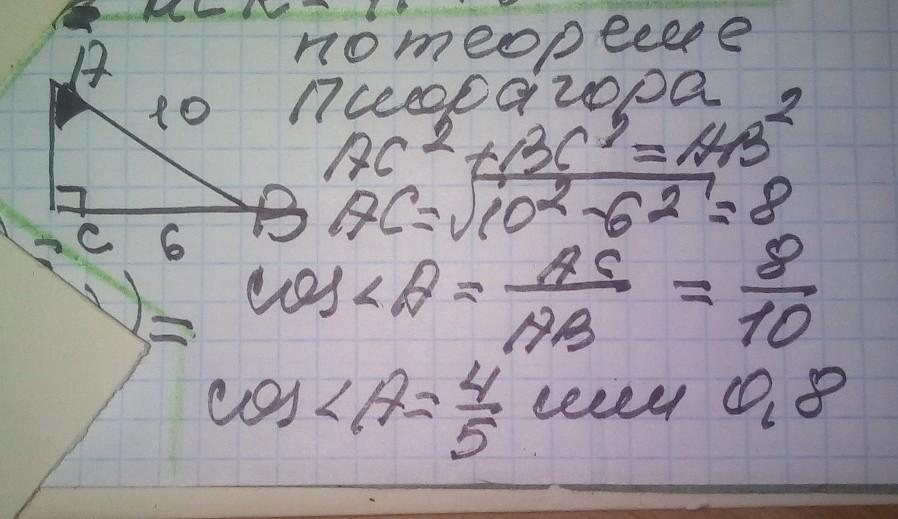 по теореме
А 10 Пифагора
AC² + BC² = AB²
C 6 B AC = √10² - 6² = 8
cos < A = AC/AB = 8/10
=
cos < A = 4/5 или 0,8